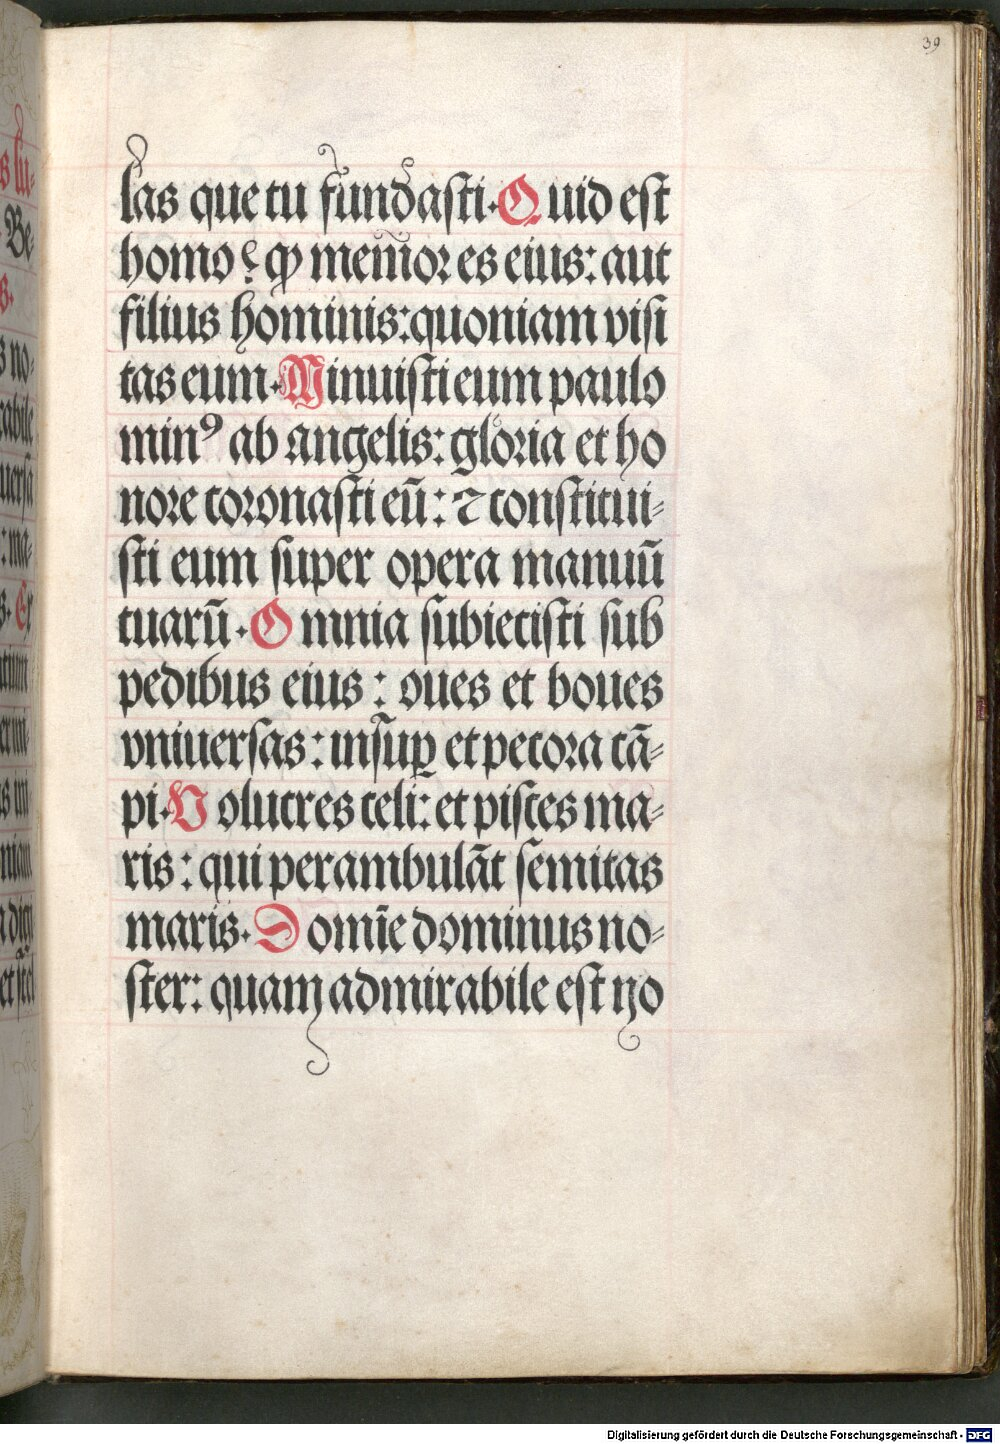 39
las que tu fundasti. Quid est
homo? ꝙ memor es eius: aut
filius hominis: quoniam visi
tas eum. Minuisti eum paulo
minꝰ ab angelis: gloria et ho
nore coronasti eū: ⁊ constitui-
sti eum super opera manuū
tuarū. Omnia subiecisti sub
pedibus eius: oues et boues
vniuersas: insuꝑ et pecora cā-
pi. Volucres celi: et pisces ma-
ris: qui perambulāt semitas
maris. Domīe dominus no-
ster: quam admirabile est no
Digitalisierung gefördert durch die Deutsche Forschungsgemeinschaft - DFG